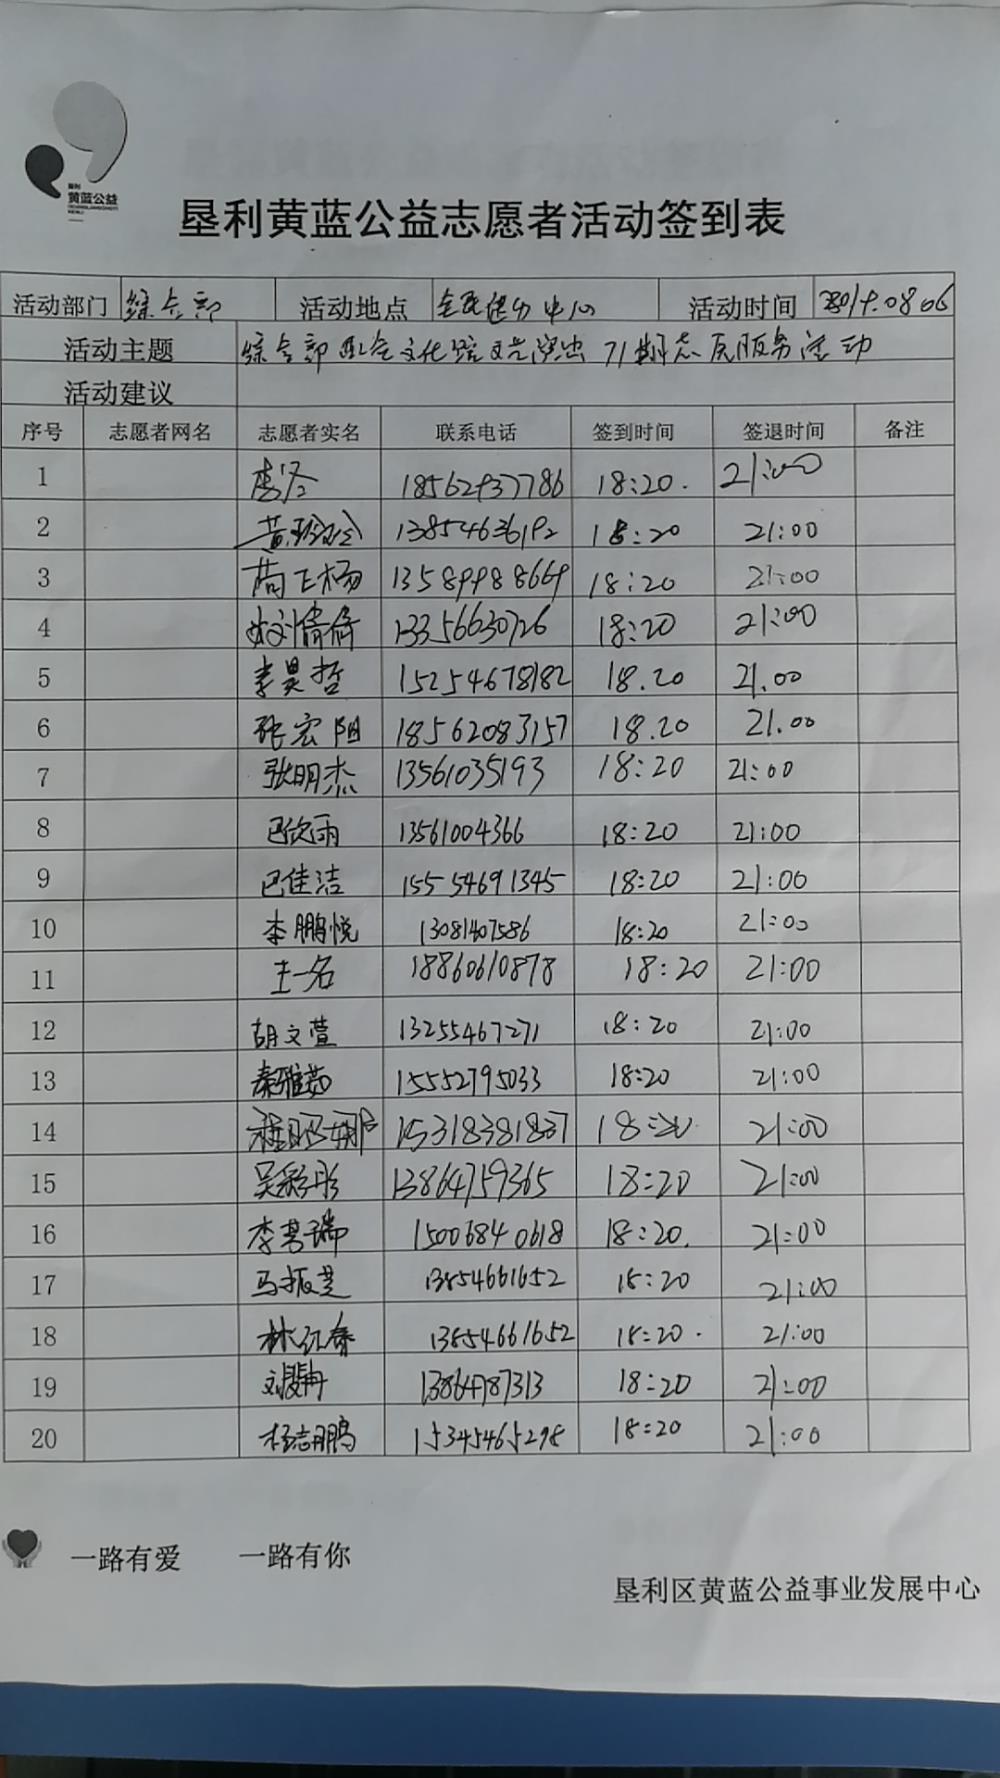 垦利
黄蓝公益
垦利黄蓝公益志愿者活动签到表
活动部门 综合部 活动地点 全民健身中心 活动时间 2019.08.06
活动主题 综合部配合文化馆文艺演出71期志愿服务活动
活动建议
序号 志愿者网名 志愿者实名 联系电话 签到时间 签退时间 备注
1 18562937786 18:20. 21:00
2 13854636192 18:20 21:00
3 13589988669 18:20 21:00
4 刘倩倩 13356630726 18:20 21:00
5 李昊哲 15254678182 18.20 21.00
6 张宏阳 18562083157 18.20 21.00
7 张明杰 13561035193 18:20 21:00
8 巴欣雨 13561004366 18:20 21:00
9 巴佳洁 15554691345 18:20 21:00
10 李鹏悦 13081407586 18:20 21:00
11 王一名 18860610878 18:20 21:00
12 胡文萱 13255467271 18:20 21:00
13 秦雅茹 15552795033 18:20 21:00
14 15318381837 18:20 21:00
15 吴彩彤 13864759365 18:20 21:00
16 李梦瑞 15006840618 18:20. 21:00
17 马振芝 13854661652 18:20 21:00
18 林红春 13854661652 18:20. 21:00
19 13864787313 18:20 21:00
20 杨志鹏 15345465298 18:20 21:00
一路有爱 一路有你
垦利区黄蓝公益事业发展中心